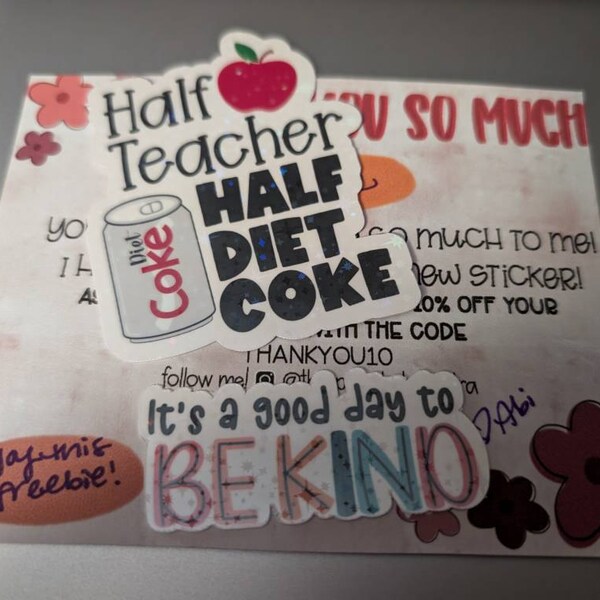 Half
Teacher
HALF
DIET
COKE
Diet
Coke
SO MUCH
SO MUCH TO ME!
I
NEW STICKER!
10% OFF YOUR
WITH THE CODE
THANKYOU10
follow me!
It's a good day to
BE KIND
Abi
freebie!